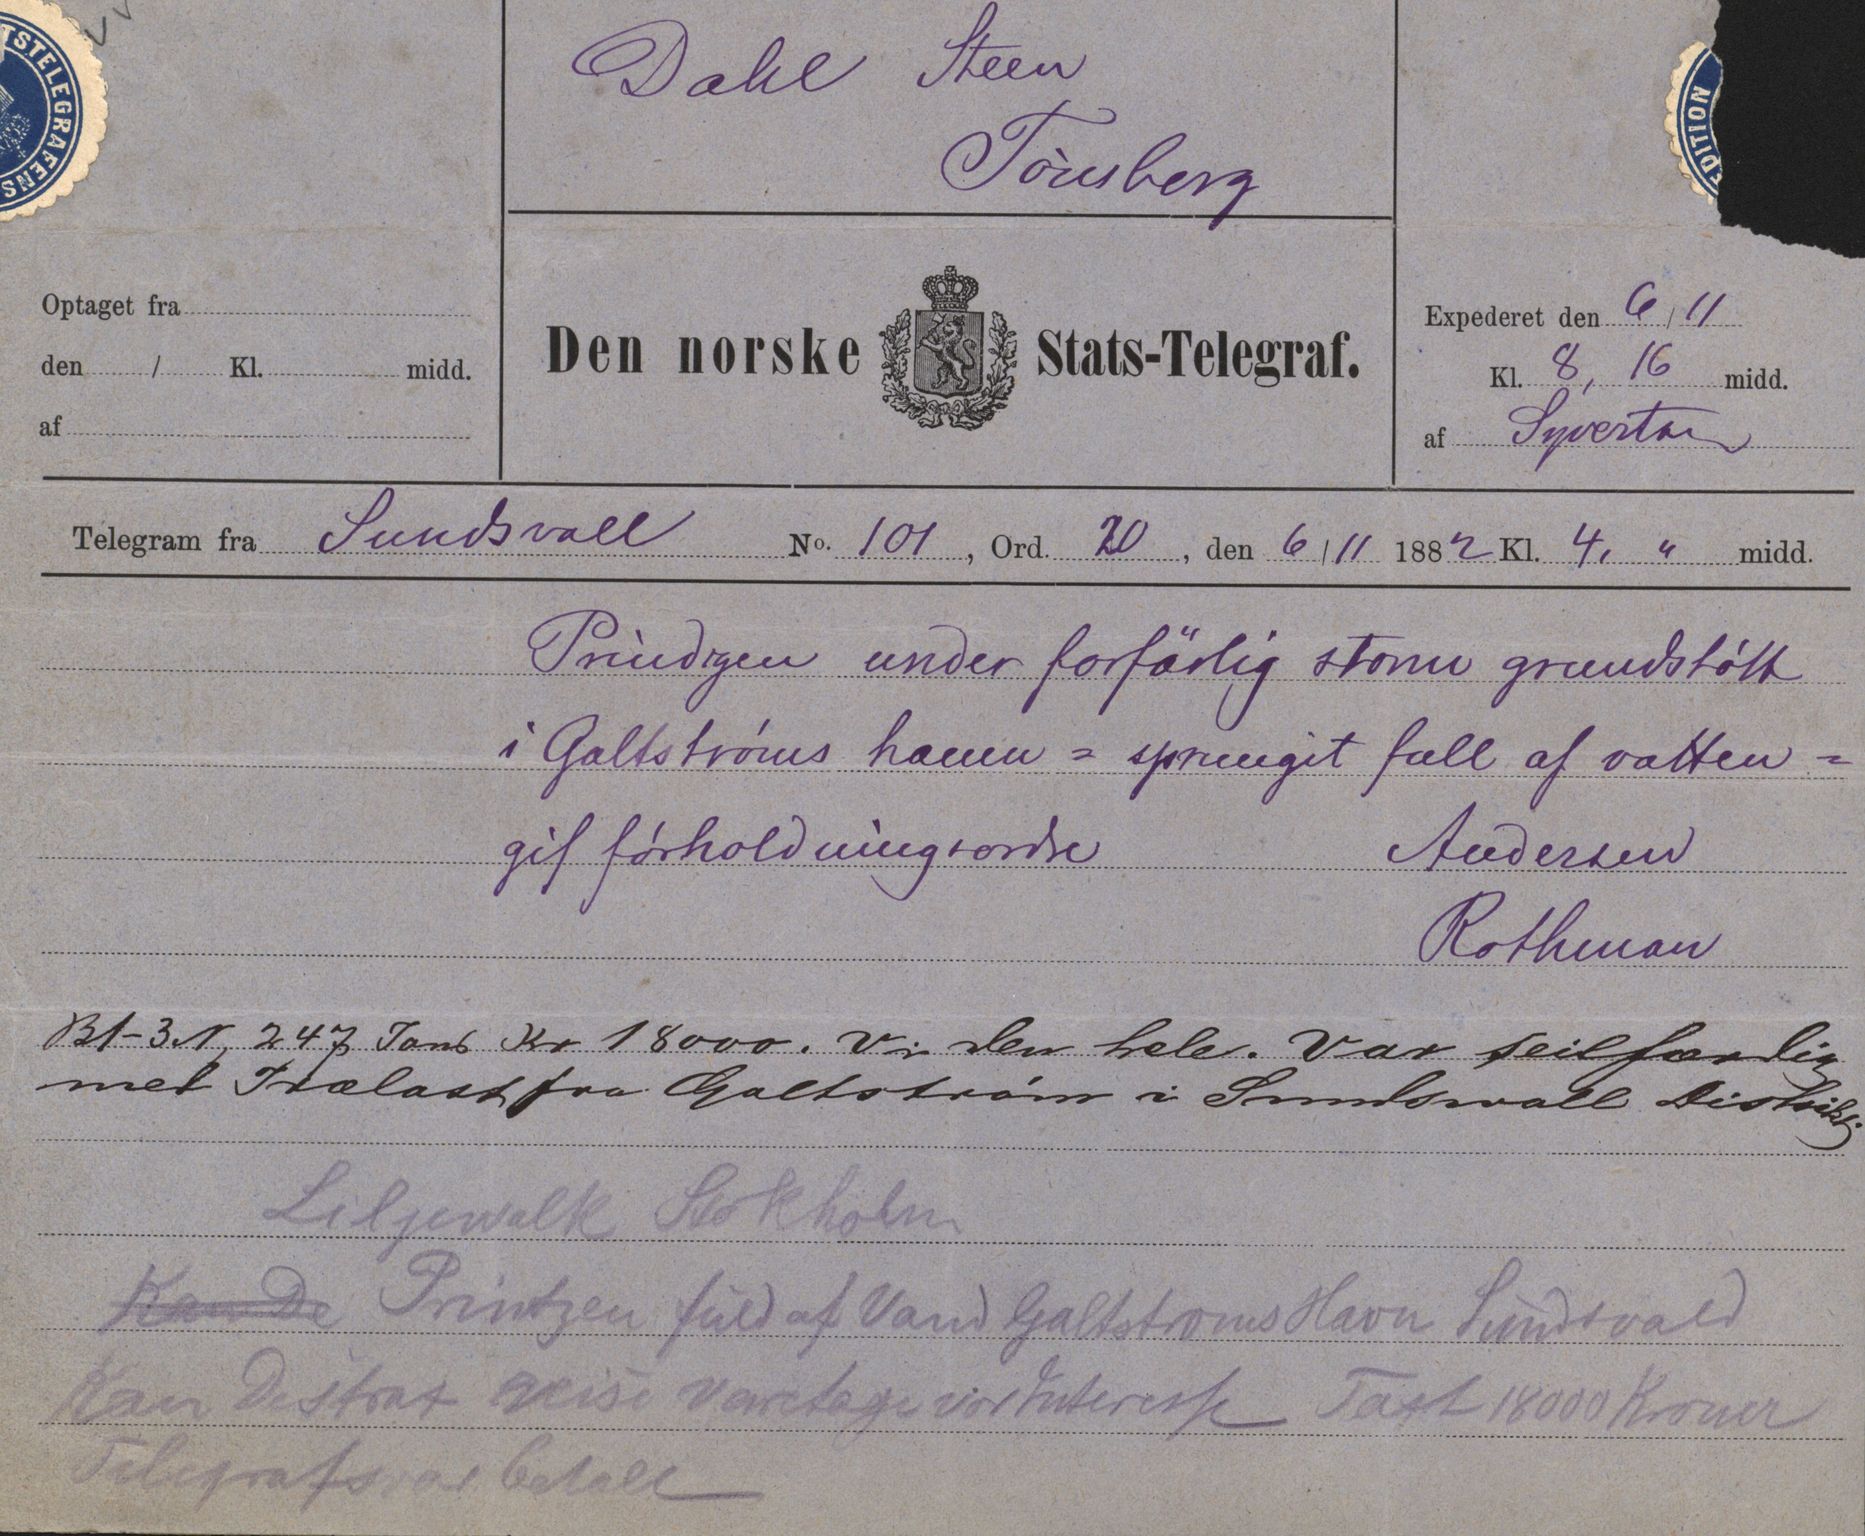 TSTELEGRAFENS
Dahl Steen
Tönsberg
PDITION
Optaget fra
den / Kl. midd.
af
Den norske Stats-Telegraf.
Expederet den 6/11
Kl. 8, 16 midd.
af Syvertsen
Telegram fra Sundsvall No. 101, Ord. 20, den 6/11 1882 Kl. 4, " midd.
Prindzen under forfärlig storm grundstött
i Galtströms hamn = sprungit full af vatten =
gif förholdningsordre Andersen
Rothman
Bk-3.N, 247 Tons Kr 18000. Vi den hele. Var seilfærdig
med Trælast fra Galtström i Sundswall Distrikt.
Liljewalk Stokholm
Kan De Printzen fuld af Vand Galtstroms Havn Sundsvald
Kan De strax reise varetage vor Interesse Taxt 18000 Kroner
Telegrafsvar betalt